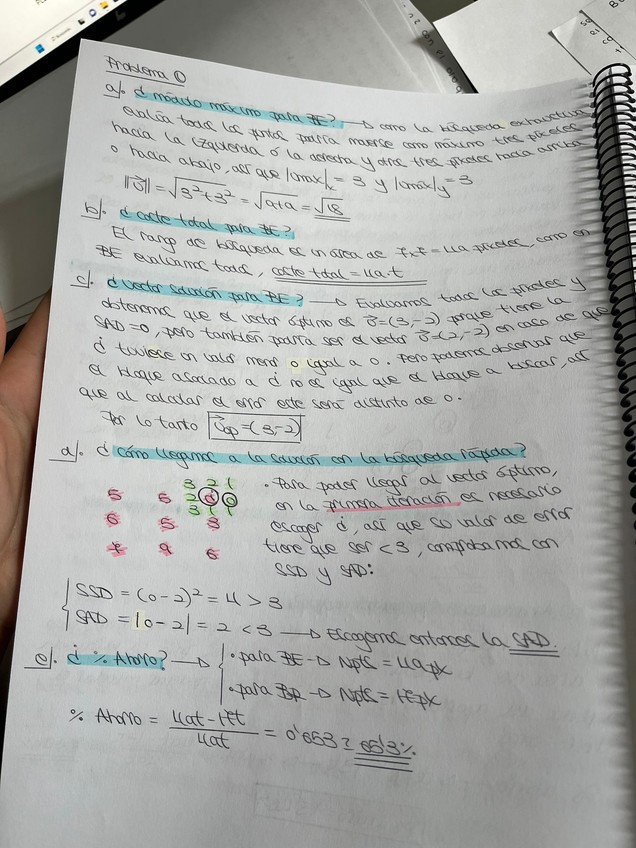 Problema ①
a). ¿ módulo máximo para BE? → como la búsqueda exhaustiva
evalúa todos los puntos podría moverse como máximo tres píxeles
hacia la izquierda ó la derecha y otros tres píxeles hacia arriba
o hacia abajo, así que |Umax|x = 3 y |Umax|y = 3
||U|| = √3²+3² = √9+9 = √18
b). ¿ coste total para BE?
El rango de búsqueda es un área de 7x7 = 49 píxeles, como en
BE evaluamos todos, coste total = 49·t
c). ¿ vector solución para BE? → Evaluamos todos los píxeles y
obtenemos que el vector óptimo es U=(3,-2) porque tiene la
SAD=0, pero también podría ser el vector U=(2,-2) en caso de que
i tuviese un valor menor o igual a 0. Pero podemos observar que
el bloque asociado a i no es igual que el bloque a buscar, así
que al calcular el error este será distinto de 0.
Por lo tanto Uop=(3,-2)
d). ¿ cómo llegamos a la solución en la búsqueda rápida?
3 2 1
5 5 2 0
6 5 3 1 1
3
7 9 6
· Para poder llegar al vector óptimo,
en la primera iteración es necesario
escoger i, así que su valor de error
tiene que ser <3, comprobamos con
SSD y SAD:
SSD = (0-2)² = 4 > 3
SAD = |0-2| = 2 < 3 → Escogemos entonces la SAD.
e). ¿ % Ahorro? → · para BE → Npts = 49px
· para BR → Npts = 17px
% Ahorro = 49t-17t / 49t = 0'653 ≈ 65'3%